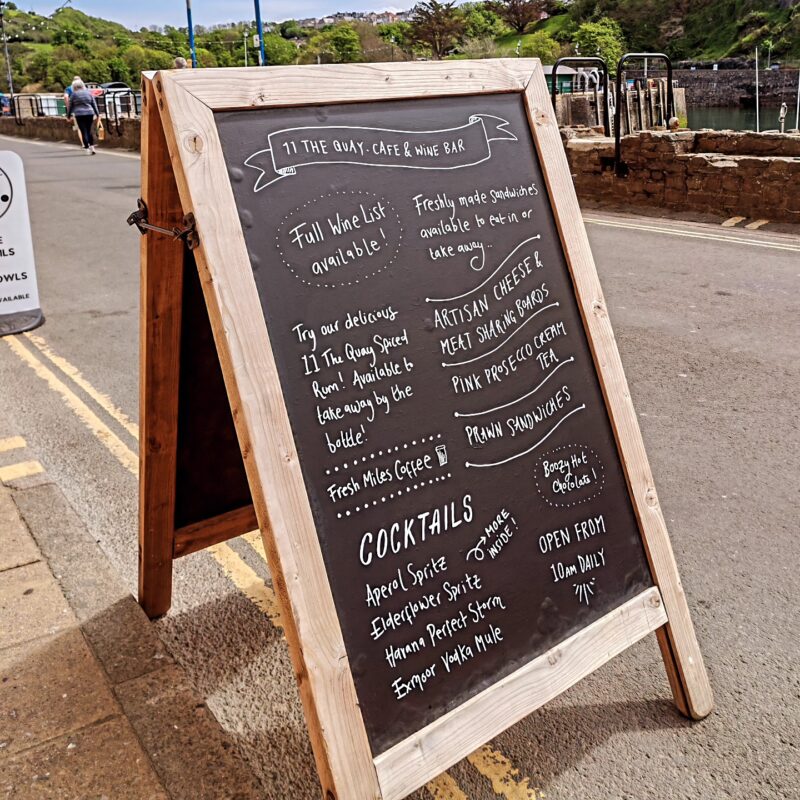 11 THE QUAY. CAFE & WINE BAR
Full Wine List
available!
Freshly made sandwiches
available to eat in or
take away..
Try our delicious
11 The Quay Spiced
Rum! Available to
takeaway by the
bottle!
ARTISAN CHEESE &
MEAT SHARING BOARDS
PINK PROSECCO CREAM
TEA
PRAWN SANDWICHES
Fresh Miles Coffee
Boozy Hot
Chocolate!
COCKTAILS
MORE
INSIDE!
Aperol Spritz
Elderflower Spritz
Havana Perfect Storm
Exmoor Vodka Mule
OPEN FROM
10AM DAILY